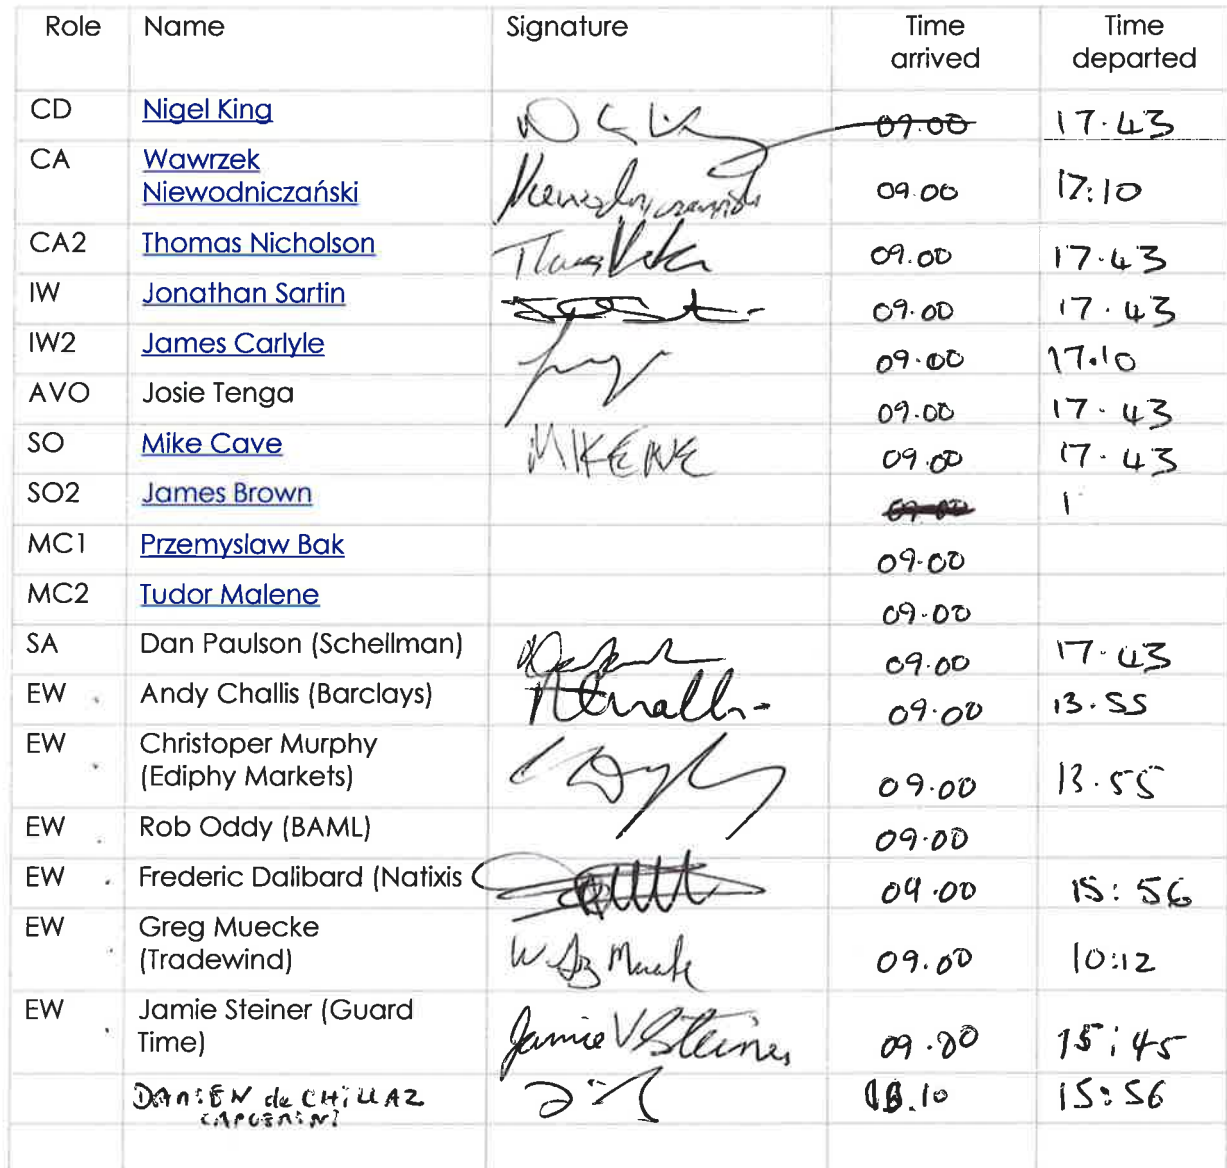 Role Name Signature Time arrived Time departed
CD Nigel King 09.00 17.43
CA Wawrzek
Niewodniczański 09.00 17:10
CA2 Thomas Nicholson 09.00 17.43
IW Jonathan Sartin 09.00 17.43
IW2 James Carlyle 09.00 17.10
AVO Josie Tenga 09.00 17.43
SO Mike Cave 09.00 17.43
SO2 James Brown 09.00 1
MC1 Przemyslaw Bak 09.00
MC2 Tudor Malene 09.00
SA Dan Paulson (Schellman) 09.00 17.43
EW Andy Challis (Barclays) 09.00 13.55
EW Christoper Murphy
(Ediphy Markets) 09.00 13.55
EW Rob Oddy (BAML) 09.00
EW Frederic Dalibard (Natixis 09.00 15:56
EW Greg Muecke
(Tradewind) 09.00 10:12
EW Jamie Steiner (Guard
Time) Jamie V Steiner 09.00 15:45
DAMIEN de CHILLAZ .10 15:56
CAPGEMINI